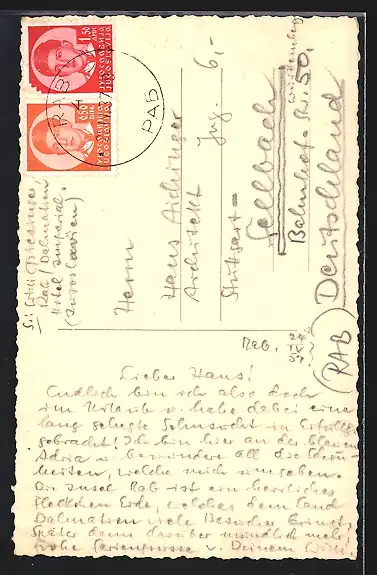 Rab, 24 IX 37
Lieber Hans!
Endlich bin ich also doch
im Urlaub u. habe dabei eine
lang gehegte Sehnsucht in Erfüllg.
gebracht! Ich bin hier an der blauen
Adria u. bewundere all die Schön-
heiten, welche mich umgeben.
Die Insel Rab ist ein herrliches
Fleckchen Erde, welches dem Land
Dalmatien viele Besucher bringt.
Später dann darüber mündlich mehr,
frohe Feriengrüsse v. Deinem
Herrn
Hans Aichinger
Architekt
Stuttgart-
Fellbach
Württemberg
Bahnhof-Str. 50.
(RAB) Deutschland
Rab / Dalmatien
Hotel Imperial.
(Jugoslavien)
1.50
ДИН.
ЈУГОСЛАВИЈА
JUGOSLAVIJA
DIN.
ЈУГОСЛАВИЈА
JUGOSLAVIJA
RAB
РАБ